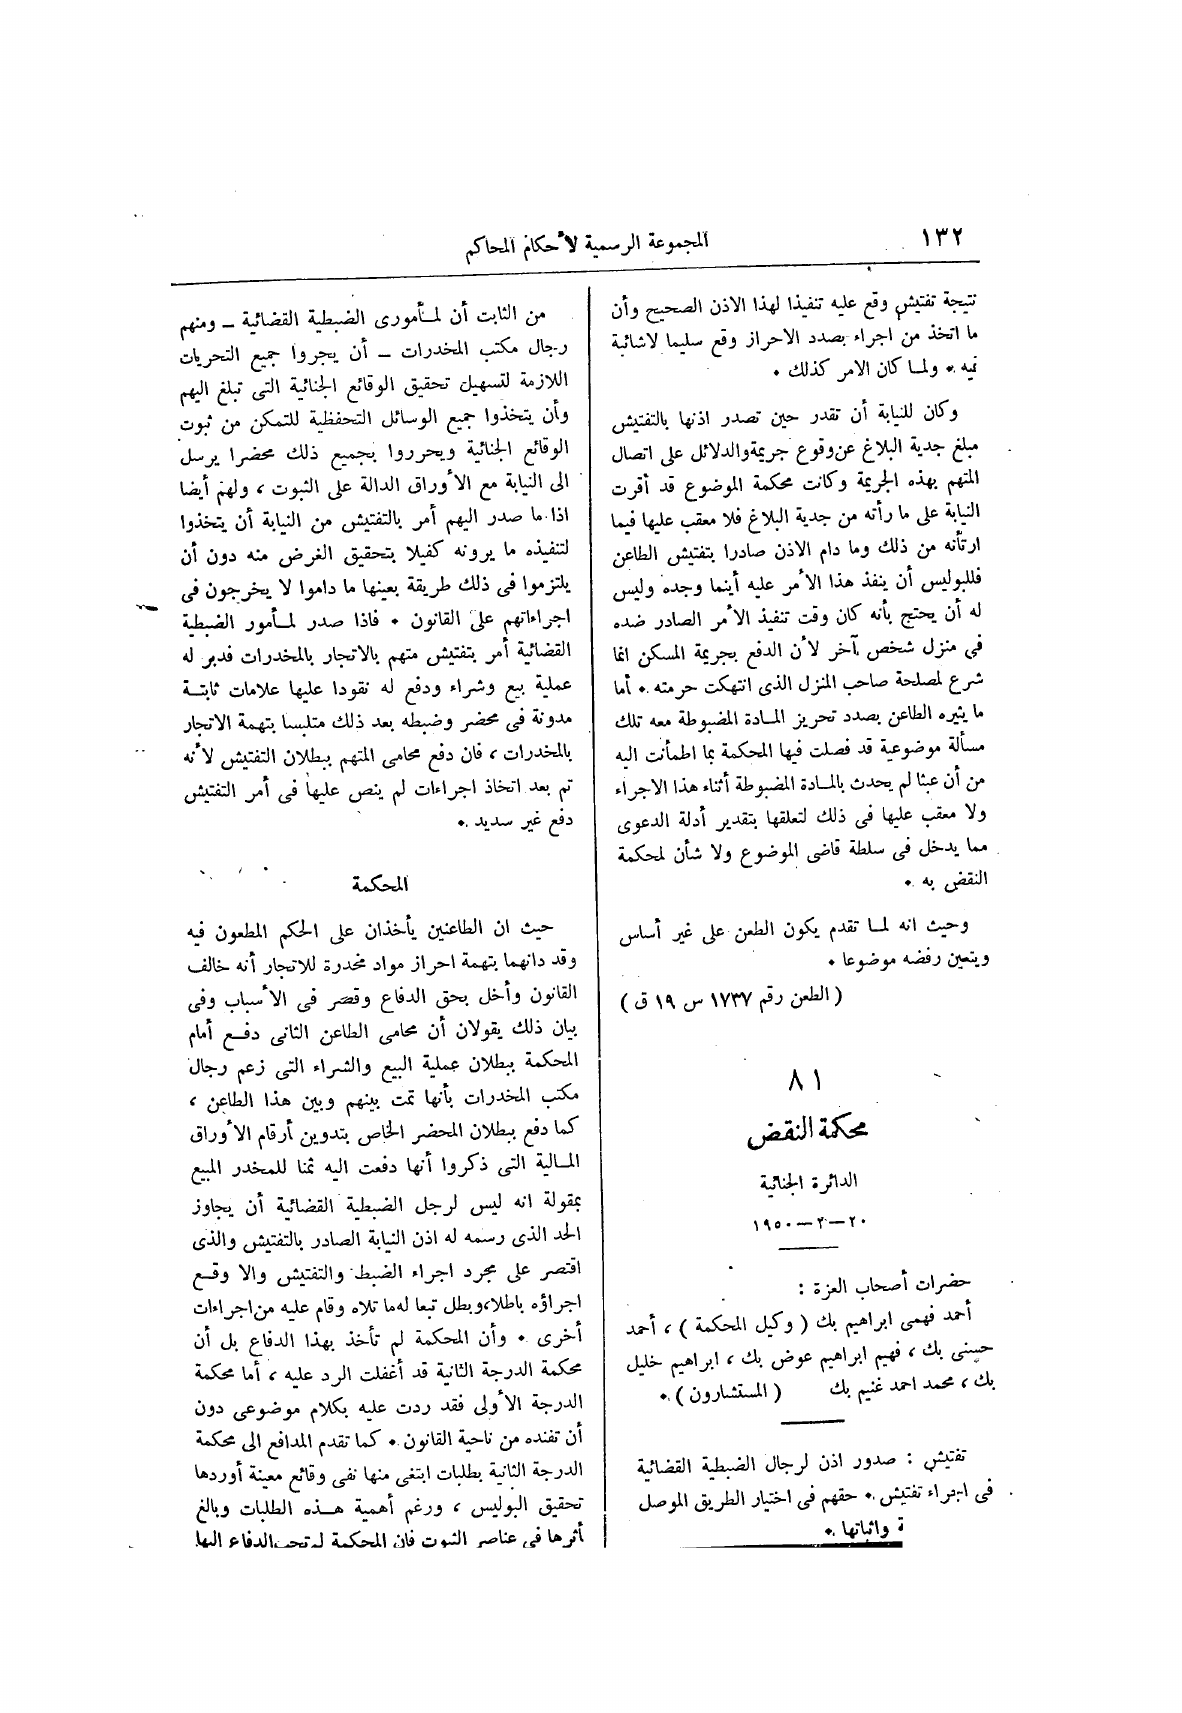 ١٣٢
المجموعة الرسمية لأحكام المحاكم
نتيجة تفتيش وقع عليه تنفيذا لهذا الاذن الصحيح وأن
ما اتخذ من اجراء بصدد الاحراز وقع سليما لاشائبة
فيه . ولما كان الامر كذلك .
وكان للنيابة أن تقدر حين تصدر اذنها بالتفتيش
مبلغ جدية البلاغ عن وقوع جريمة والدلائل على اتصال
المتهم بهذه الجريمة وكانت محكمة الموضوع قد أقرت
النيابة على ما رأته من جدية البلاغ فلا معقب عليها فيما
ارتأته من ذلك وما دام الاذن صادرا بتفتيش الطاعن
فللبوليس أن ينفذ هذا الأمر عليه أينما وجده وليس
له أن يحتج بأنه كان وقت تنفيذ الأمر الصادر ضده
فى منزل شخص آخر لأن الدفع بحريمة المسكن انما
شرع لمصلحة صاحب المنزل الذى انتهكت حرمته . أما
ما يثيره الطاعن بصدد تحريز المادة المضبوطة معه تلك
مسألة موضوعية قد فصلت فيها المحكمة بما اطمأنت اليه
من أن عبثا لم يحدث بالمادة المضبوطة أثناء هذا الاجراء
ولا معقب عليها فى ذلك لتعلقها بتقدير أدلة الدعوى
مما يدخل فى سلطة قاضى الموضوع ولا شأن لمحكمة
النقض به .
وحيث انه لما تقدم يكون الطعن على غير أساس
ويتعين رفضه موضوعا .
( الطعن رقم ١٧٣٧ س ١٩ ق )
٨١
محكمة النقض
الدائرة الجنائية
٢٠ — ٢ — ١٩٥٠
حضرات أصحاب العزة :
أحمد فهمى ابراهيم بك ( وكيل المحكمة ) ، أحمد
حسنى بك ، فهيم ابراهيم عوض بك ، ابراهيم خليل
بك ، محمد احمد غنيم بك ( المستشارون ) .
تفتيش : صدور اذن لرجال الضبطية القضائية
فى اجراء تفتيش . حقهم فى اختيار الطريق الموصل
ة واثباتها .
من الثابت أن لمأمورى الضبطية القضائية ــ ومنهم
رجال مكتب المخدرات ــ أن يجروا جميع التحريات
اللازمة لتسهيل تحقيق الوقائع الجنائية التى تبلغ اليهم
وأن يتخذوا جميع الوسائل التحفظية للتمكن من ثبوت
الوقائع الجنائية ويحرروا بجميع ذلك محضرا يرسل
الى النيابة مع الأوراق الدالة على الثبوت ، ولهم أيضا
اذا ما صدر اليهم أمر بالتفتيش من النيابة أن يتخذوا
لتنفيذه ما يرونه كفيلا بتحقيق الغرض منه دون أن
يلتزموا فى ذلك طريقة بعينها ما داموا لا يخرجون فى
اجراءاتهم على القانون . فاذا صدر لمأمور الضبطية
القضائية أمر بتفتيش متهم بالاتجار بالمخدرات فدبر له
عملية بيع وشراء ودفع له نقودا عليها علامات ثابتة
مدونة فى محضر وضبطه بعد ذلك متلبسا بتهمة الاتجار
بالمخدرات ، فان دفع محامى المتهم ببطلان التفتيش لأنه
تم بعد اتخاذ اجراءات لم ينص عليها فى أمر التفتيش
دفع غير سديد .
المحكمة
حيث ان الطاعنين يأخذان على الحكم المطعون فيه
وقد دانهما بتهمة احراز مواد مخدرة للاتجار أنه خالف
القانون وأخل بحق الدفاع وقصر فى الأسباب وفى
بيان ذلك يقولان أن محامى الطاعن الثانى دفع أمام
المحكمة ببطلان عملية البيع والشراء التى زعم رجال
مكتب المخدرات بأنها تمت بينهم وبين هذا الطاعن ،
كما دفع ببطلان المحضر الخاص بتدوين أرقام الأوراق
المالية التى ذكروا أنها دفعت اليه ثمنا للمخدر المبيع
بمقولة انه ليس لرجل الضبطية القضائية أن يجاوز
الحد الذى رسمه له اذن النيابة الصادر بالتفتيش والذى
اقتصر على مجرد اجراء الضبط والتفتيش والا وقع
اجراؤه باطلا، وبطل تبعا له ما تلاه وقام عليه من اجراءات
أخرى . وأن المحكمة لم تأخذ بهذا الدفاع بل أن
محكمة الدرجة الثانية قد أغفلت الرد عليه ، أما محكمة
الدرجة الأولى فقد ردت عليه بكلام موضوعى دون
أن تفنده من ناحية القانون . كما تقدم المدافع الى محكمة
الدرجة الثانية بطلبات ابتغى منها نفى وقائع معينة أوردها
تحقيق البوليس ، ورغم أهمية هذه الطلبات وبالغ
أثرها فى عناصر الثبوت فان المحكمة لم تجب الدفاع اليها